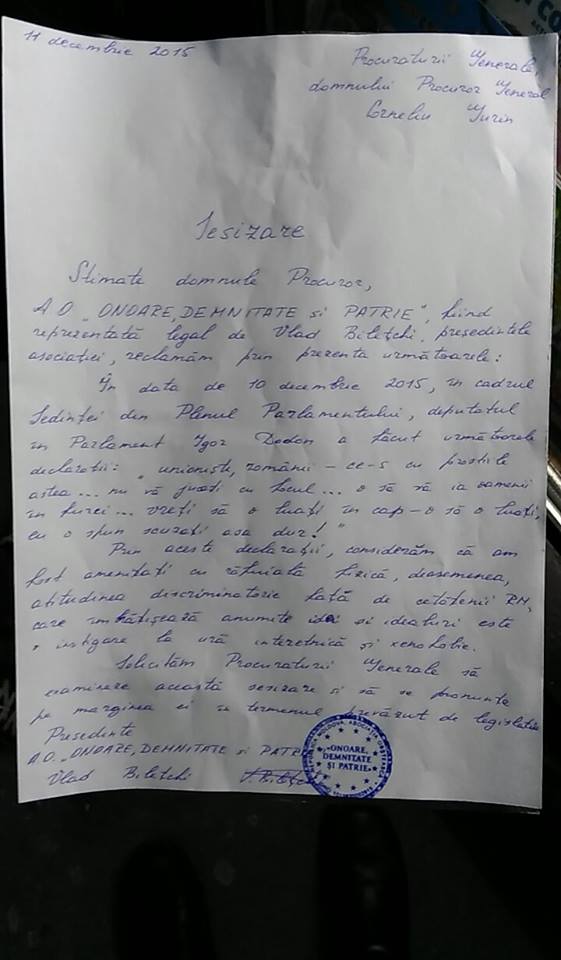 11 decembrie 2015
Procuraturii Generale,
domnului Procuror General
Corneliu Gurin
Sesizare
Stimate domnule Procuror,
A.O. „ONOARE, DEMNITATE si PATRIE", fiind
reprezentată legal de Vlad Bilețchi, președintele
asociației, reclamăm prin prezenta următoarele:
În data de 10 decembrie 2015, în cadrul
Ședinței din Plenul Parlamentului, deputatul
în Parlament Igor Dodon a făcut următoarele
declarații: „unioniști, românii - ce-s cu prostiile
astea... nu vă jucați cu focul... o să vă ia oamenii
în furci... vreți să o luați în cap - o să o luați,
eu o spun scuzați asa dur!"
Prin aceste declarații, considerăm că am
fost amenițați cu răfuiată fizică, deasemenea,
atitudinea discriminatorie față de cetățenii RM,
care îmbățișează anumite idei si idealuri este
o instigare la ură interetnică și xenofobie.
Solicităm Procuraturii Generale să
examineze această sesizare si să se pronunțe
pe marginea ei în termenul prevăzut de legislație
Președinte
A.O. „ONOARE, DEMNITATE si PATRIE
Vlad Bilețchi V. Bilețchi
MOLDOVA, ASOCIAȚIA OBȘTEASCĂ
«ONOARE,
DEMNITATE
ȘI PATRIE»